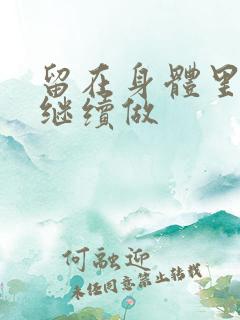 留在身體里
继續做
何融迎
未经同意禁止转载